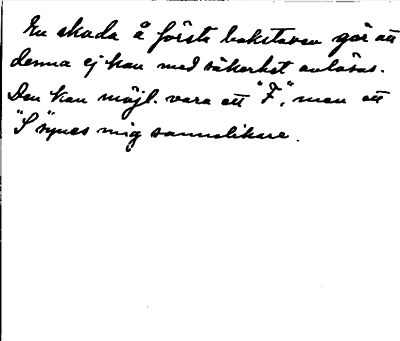 En skada å första bokstaven gör att
denna ej kan med säkerhet avläsas.
Den kan möjl. vara ett "F", men ett
"S" synes mig sannolikare.